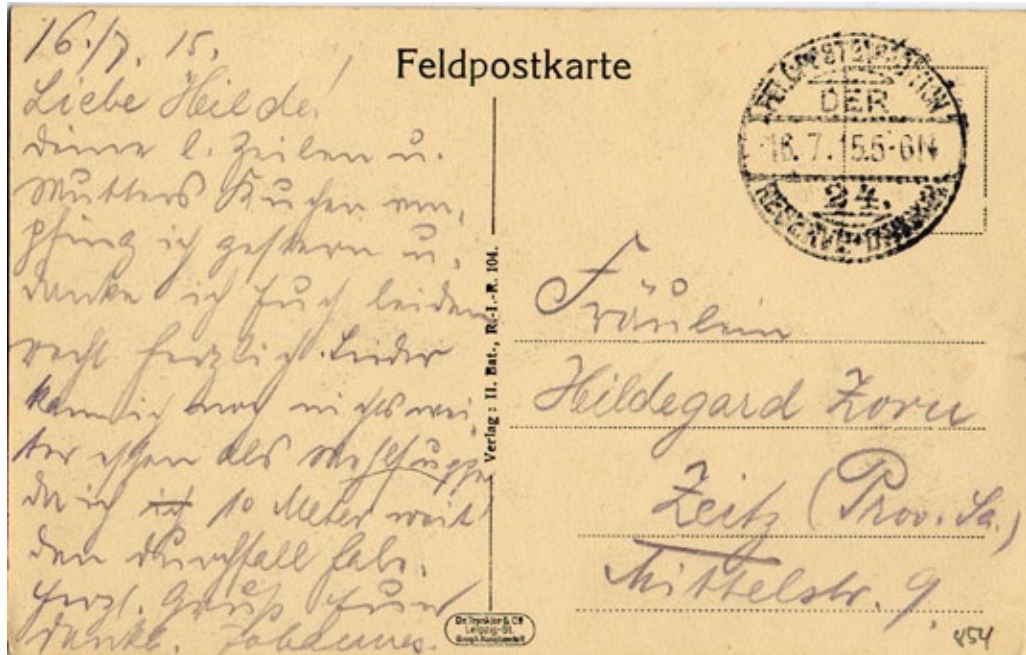 16./7. 15.
Liebe Hilde!
deine l. Zeilen u.
Mutters Kuchen em-
pfing ich gestern u.
danke ich Euch beiden
recht herzlich. Leider
kann ich noch nichts wei-
ter essen als Mehlsuppe
da ich ich 10 Meter weit
den Durchfall habe.
Herzl. Gruß Euer
dankb. Johannes.
Feldpostkarte
Verlag: II. Bat., R.-I.-R. 104.
Dr. Trenkler & Co
Leipzig-St.
FELDPOSTEXPEDITION
DER
16.7.15.5-6N
24.
RESERVE-DIVISION
Fräulein
Hildegard Zorn
Zeitz (Prov. Sa.)
Mittelstr. 9.
854